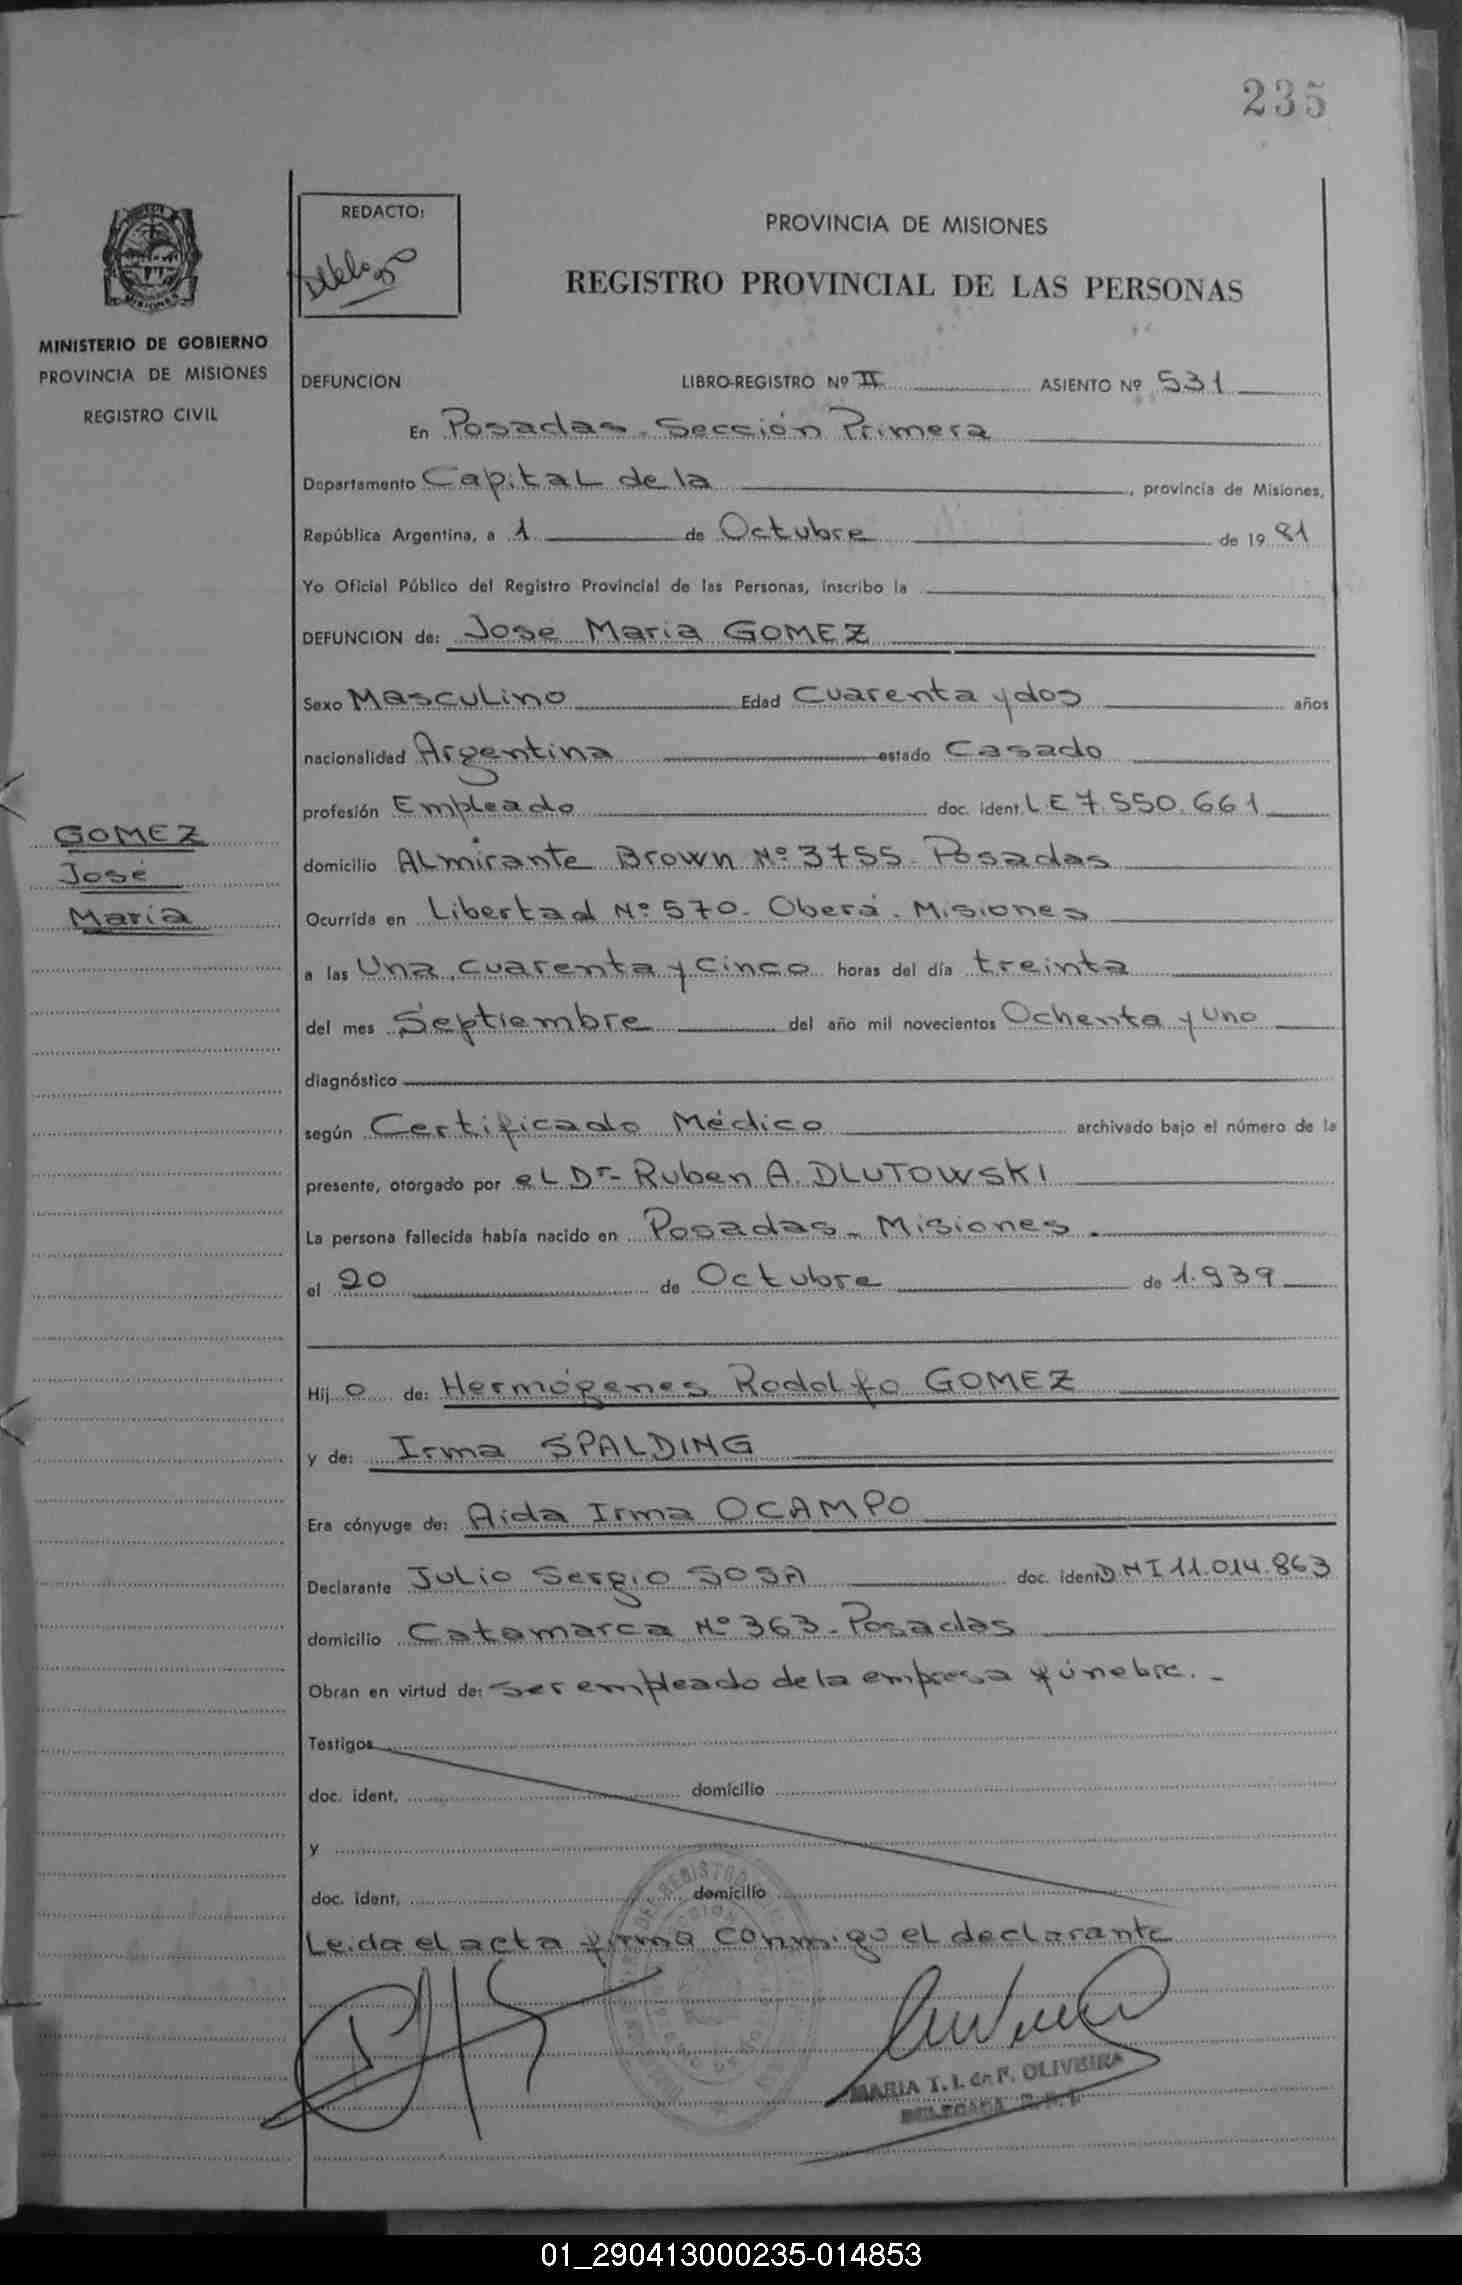 235
REDACTO:
PROVINCIA DE MISIONES
REGISTRO PROVINCIAL DE LAS PERSONAS
MINISTERIO DE GOBIERNO
PROVINCIA DE MISIONES
REGISTRO CIVIL
DEFUNCION LIBRO-REGISTRO Nº II ASIENTO Nº 531
En Posadas - Sección Primera
Departamento Capital de la, provincia de Misiones,
República Argentina, a 1 de Octubre de 19 81
Yo Oficial Público del Registro Provincial de las Personas, inscribo la
DEFUNCION de: José María GOMEZ
Sexo Masculino Edad Cuarenta y dos años
nacionalidad Argentina estado Casado
profesión Empleado doc. ident. L.E 7.550.661
GOMEZ
José
María
domicilio Almirante Brown Nº 3755 - Posadas
Ocurrida en Libertad Nº 570 - Oberá - Misiones
a las Una cuarenta y Cinco horas del día treinta
del mes Septiembre del año mil novecientos Ochenta y Uno
diagnóstico
según Certificado Médico archivado bajo el número de la
presente, otorgado por el Dr- Ruben A. DLUTOWSKI
La persona fallecida había nacido en Posadas - Misiones -
el 20 de Octubre de 1.939
Hij o de: Hermógenes Rodolfo GOMEZ
y de: Irma SPALDING
Era cónyuge de: Aida Irma OCAMPO
Declarante Julio Sergio SOSA doc. ident DNI 11.014.863
domicilio Catamarca Nº 363 - Posadas
Obran en virtud de: ser empleado de la empresa fúnebre. -
Testigos
doc. ident. domicilio
y
doc. ident. domicilio
Leida el acta firma conmigo el declarante
MARIA T. I. de F. OLIVEIRA
DELEGADA
01_290413000235-014853